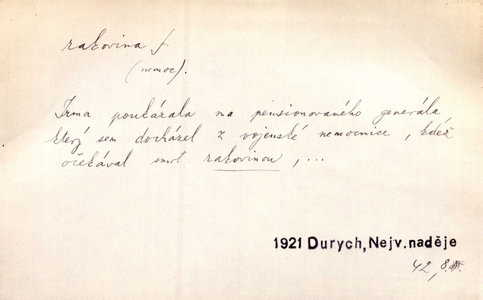 rakovina f.
(nemoc).
Irma poukázala na pensionovaného generála
který sem docházel z vojenské nemocnice, kdež
očekával smrt rakovinou, ...
1921 Durych, Nejv. naděje
42, 8.